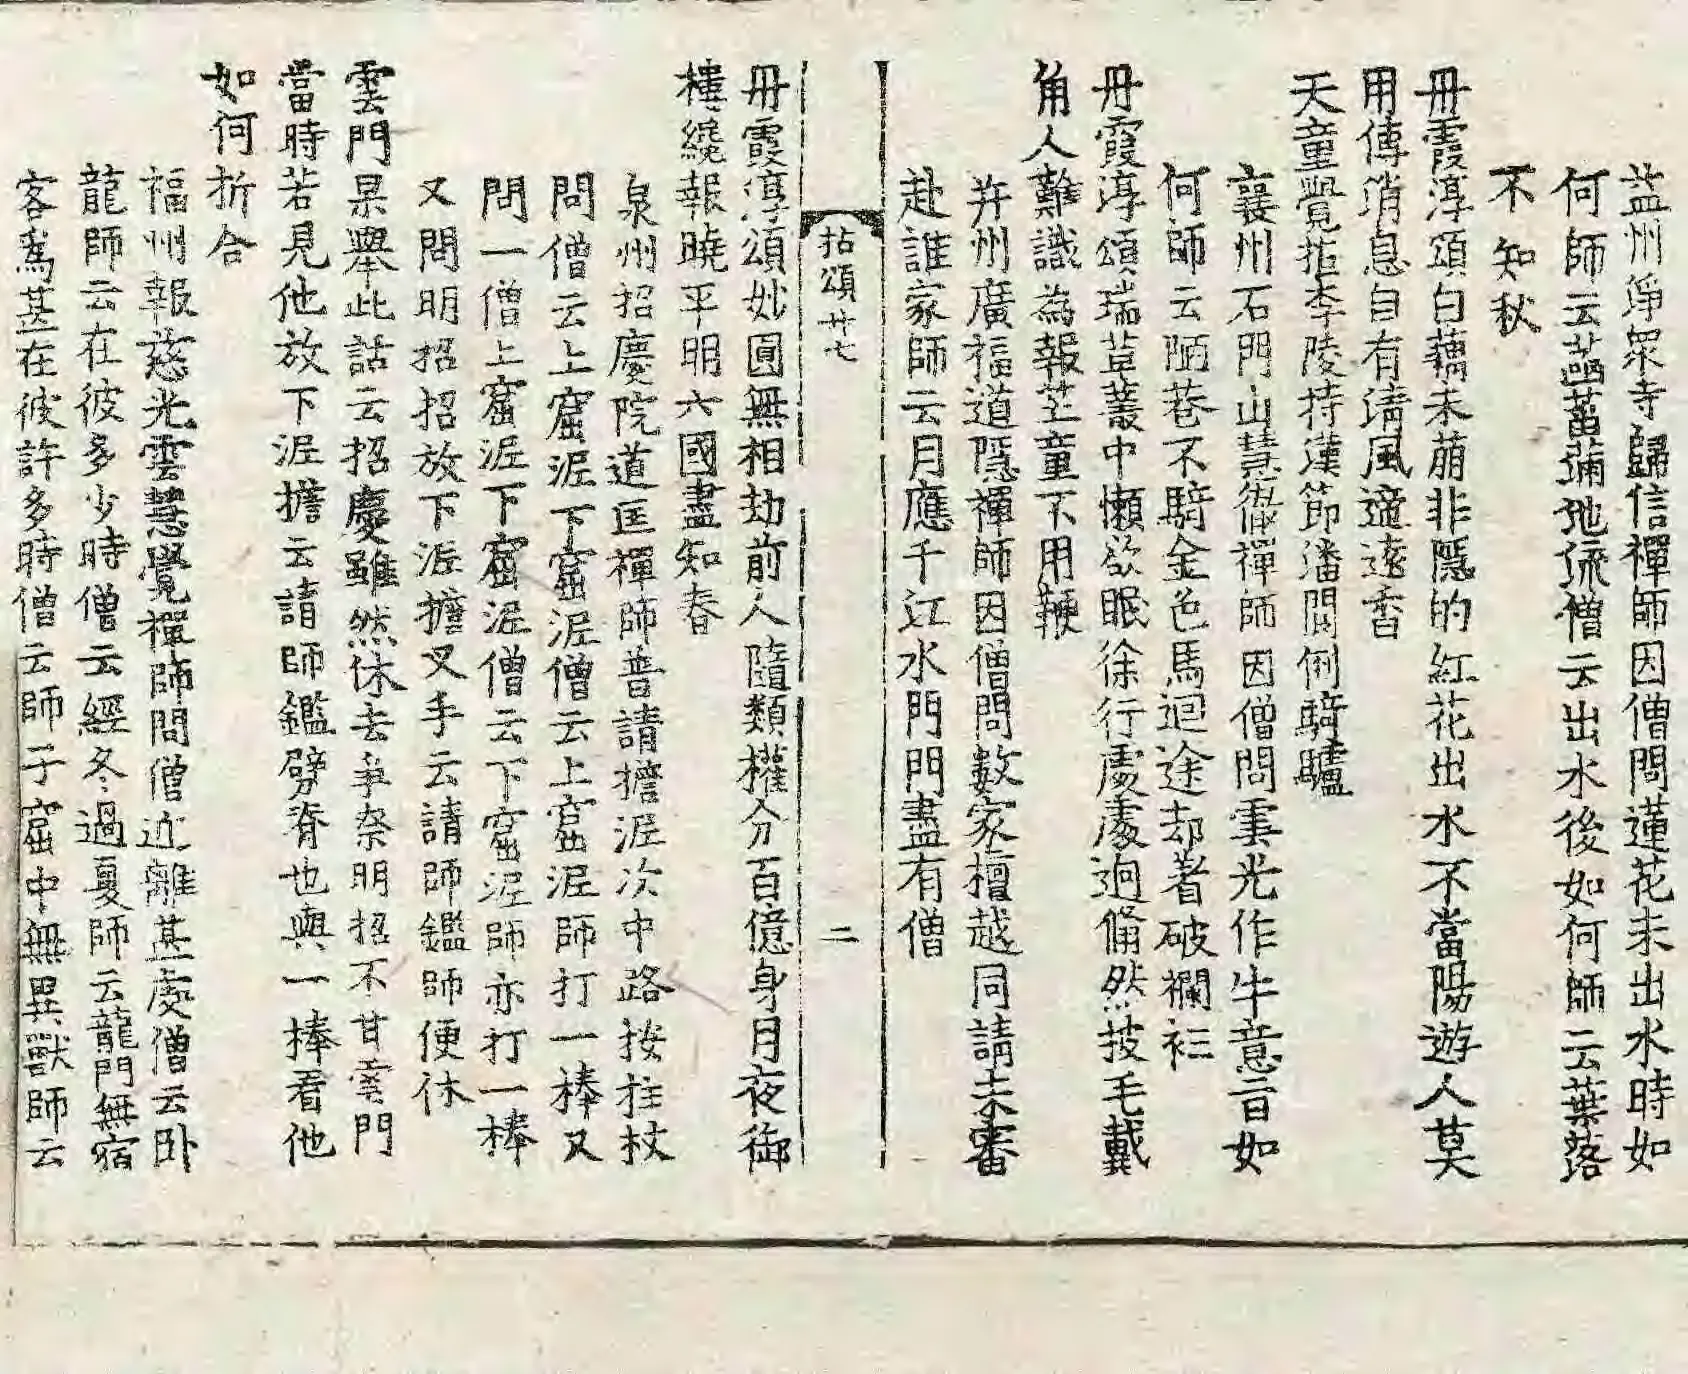 益州淨眾寺歸信禪師因僧問蓮花未出水時如
何師云菡萏滿池流僧云出水後如何師云葉落
不知秋
丹霞淳頌白藕未萠非隱的紅花出水不當陽遊人莫
用傳消息自有清風遞遠香
天童覺拈李陵持漢節潘閬倒騎驢
襄州石門山慧徹禪師因僧問雲光作牛意旨如
何師云陋巷不騎金色馬迴途却著破襴衫
丹霞淳頌瑞草叢中懶欲眠徐行處處迥翛然披毛戴
角人難識為報芒童不用鞭
并州廣福道隱禪師因僧問數家檀越同請未審
赴誰家師云月應千江水門門盡有僧
拈頌廿七
二
丹霞淳頌妙圓無相劫前人隨類權分百億身月夜御
樓纔報曉平明六國盡知春
泉州招慶院道匡禪師普請擔泥次中路按拄杖
問僧云上窟泥下窟泥僧云上窟泥師打一棒又
問一僧上窟泥下窟泥僧云下窟泥師亦打一棒
又問明招招放下泥擔叉手云請師鑑師便休
雲門杲舉此話云招慶雖然休去爭柰明招不甘雲門
當時若見他放下泥擔云請師鑑劈脊也與一棒看他
如何折合
福州報慈光雲慧覺禪師問僧近離甚處僧云卧
龍師云在彼多少時僧云經冬過夏師云龍門無宿
客爲甚在彼許多時僧云師子窟中無異獸師云